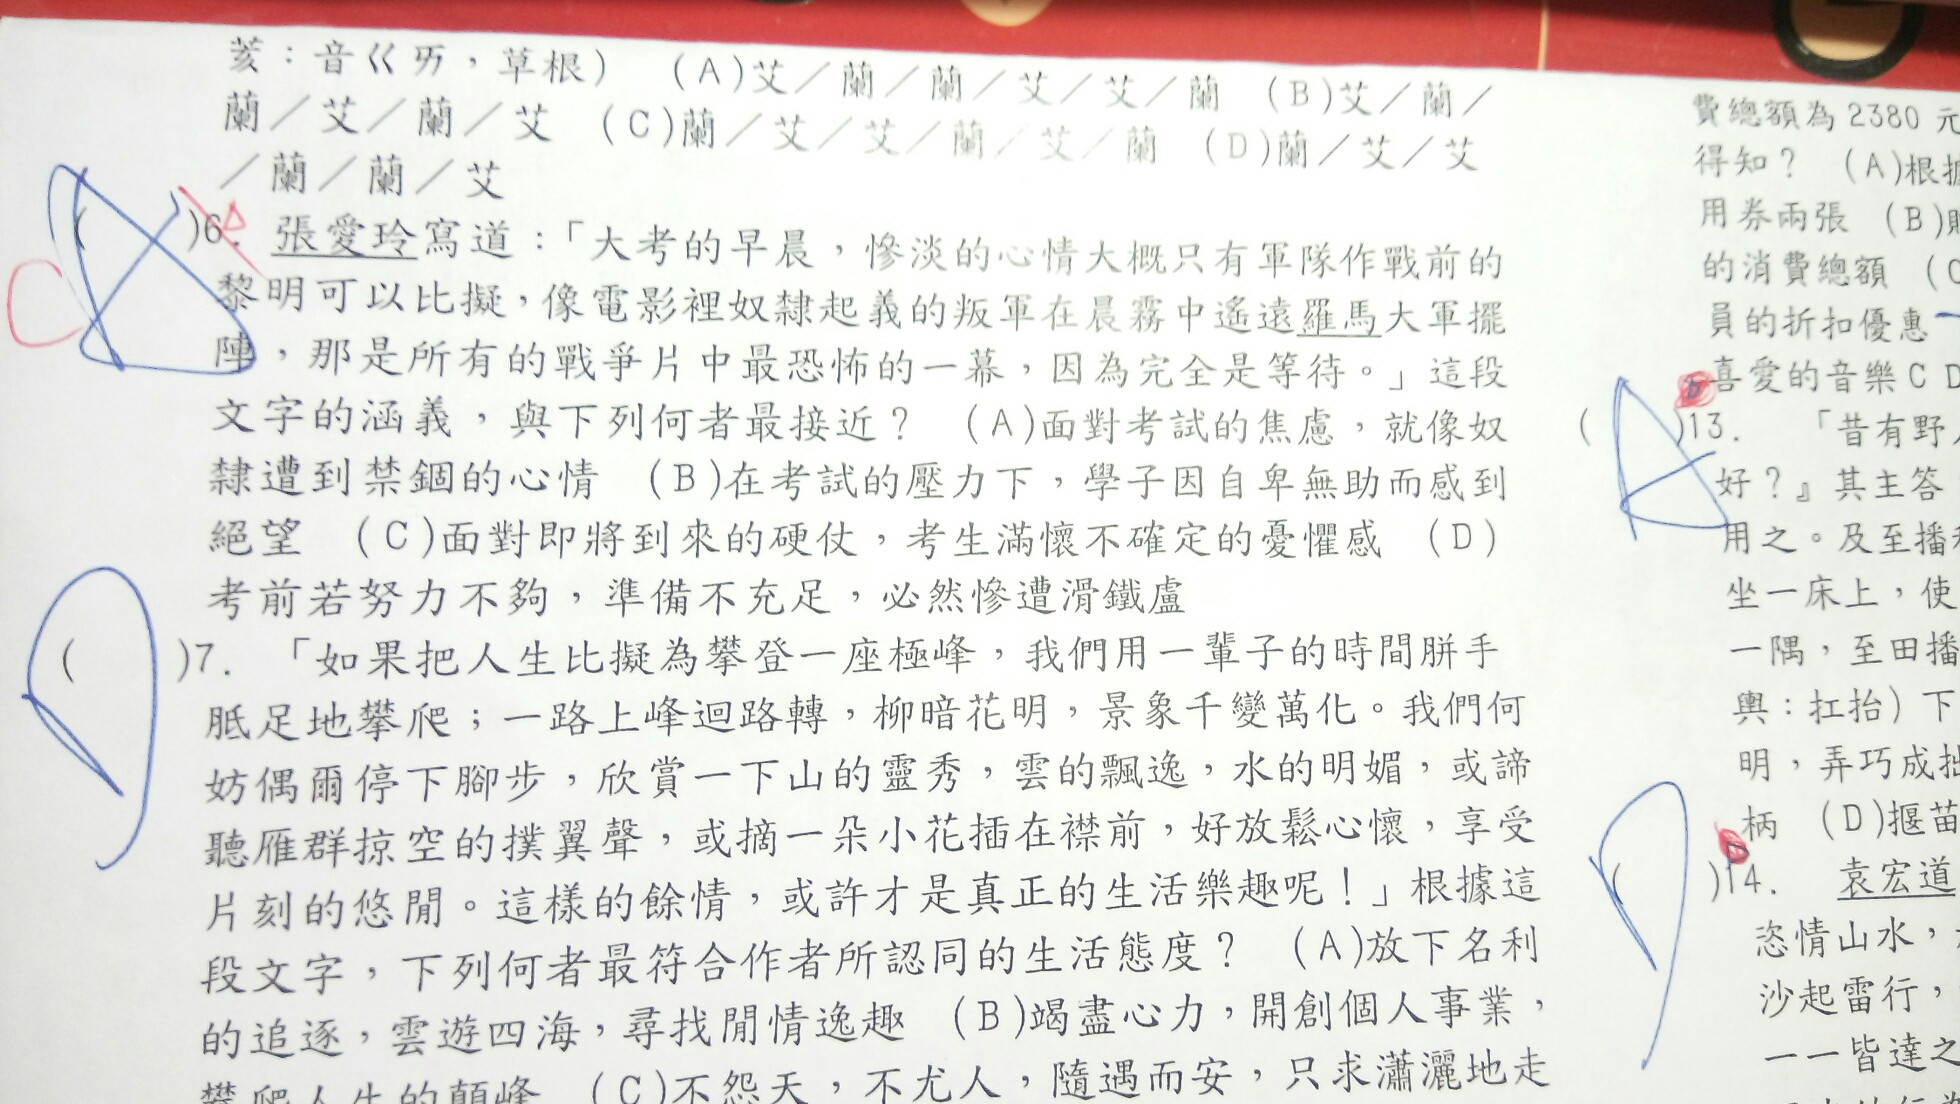 荄：音ㄍㄞ，草根） (A)艾／蘭／蘭／艾／艾／蘭 (B)艾／蘭／
蘭／艾／蘭／艾 (C)蘭／艾／艾／蘭／艾／蘭 (D)蘭／艾／艾
／蘭／蘭／艾
( A )6. 張愛玲寫道：「大考的早晨，慘淡的心情大概只有軍隊作戰前的
C
黎明可以比擬，像電影裡奴隸起義的叛軍在晨霧中遙遠羅馬大軍擺
陣，那是所有的戰爭片中最恐怖的一幕，因為完全是等待。」這段
文字的涵義，與下列何者最接近？ (A)面對考試的焦慮，就像奴
隸遭到禁錮的心情 (B)在考試的壓力下，學子因自卑無助而感到
絕望 (C)面對即將到來的硬仗，考生滿懷不確定的憂懼感 (D)
考前若努力不夠，準備不充足，必然慘遭滑鐵盧
( D )7. 「如果把人生比擬為攀登一座極峰，我們用一輩子的時間胼手
胝足地攀爬；一路上峰迴路轉，柳暗花明，景象千變萬化。我們何
妨偶爾停下腳步，欣賞一下山的靈秀，雲的飄逸，水的明媚，或諦
聽雁群掠空的撲翼聲，或摘一朵小花插在襟前，好放鬆心懷，享受
片刻的悠閒。這樣的餘情，或許才是真正的生活樂趣呢！」根據這
段文字，下列何者最符合作者所認同的生活態度？ (A)放下名利
的追逐，雲遊四海，尋找閒情逸趣 (B)竭盡心力，開創個人事業，
攀爬人生的顛峰 (C)不怨天，不尤人，隨遇而安，只求瀟灑地走
費總額為2380元
得知？ (A)根據
用券兩張 (B)
的消費總額 (
員的折扣優惠
喜愛的音樂CD
( A )13. 「昔有野
好？』其主答
用之。及至播
坐一床上，使
一隅，至田播
輿：扛抬）下
明，弄巧成拙
柄 (D)揠苗
( D )14. 袁宏道
恣情山水，
沙起雷行，
一一皆達之